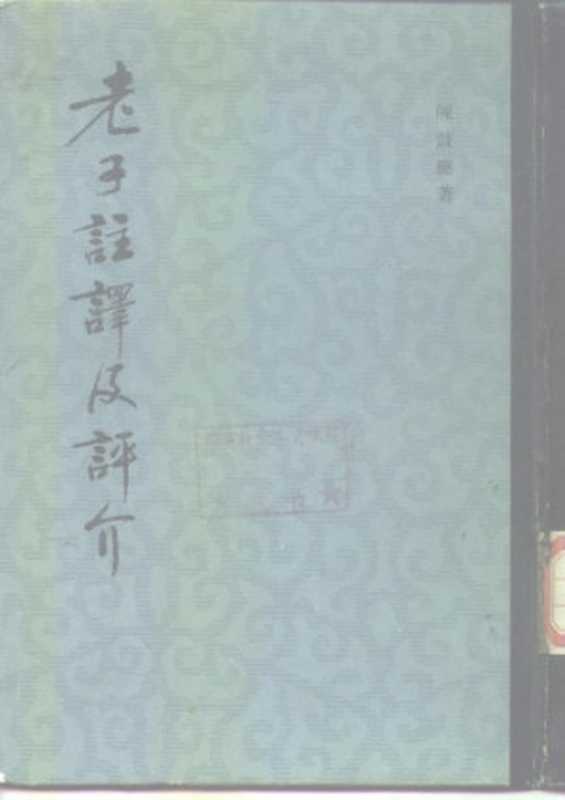 陳鼓應著
老子註譯及評介